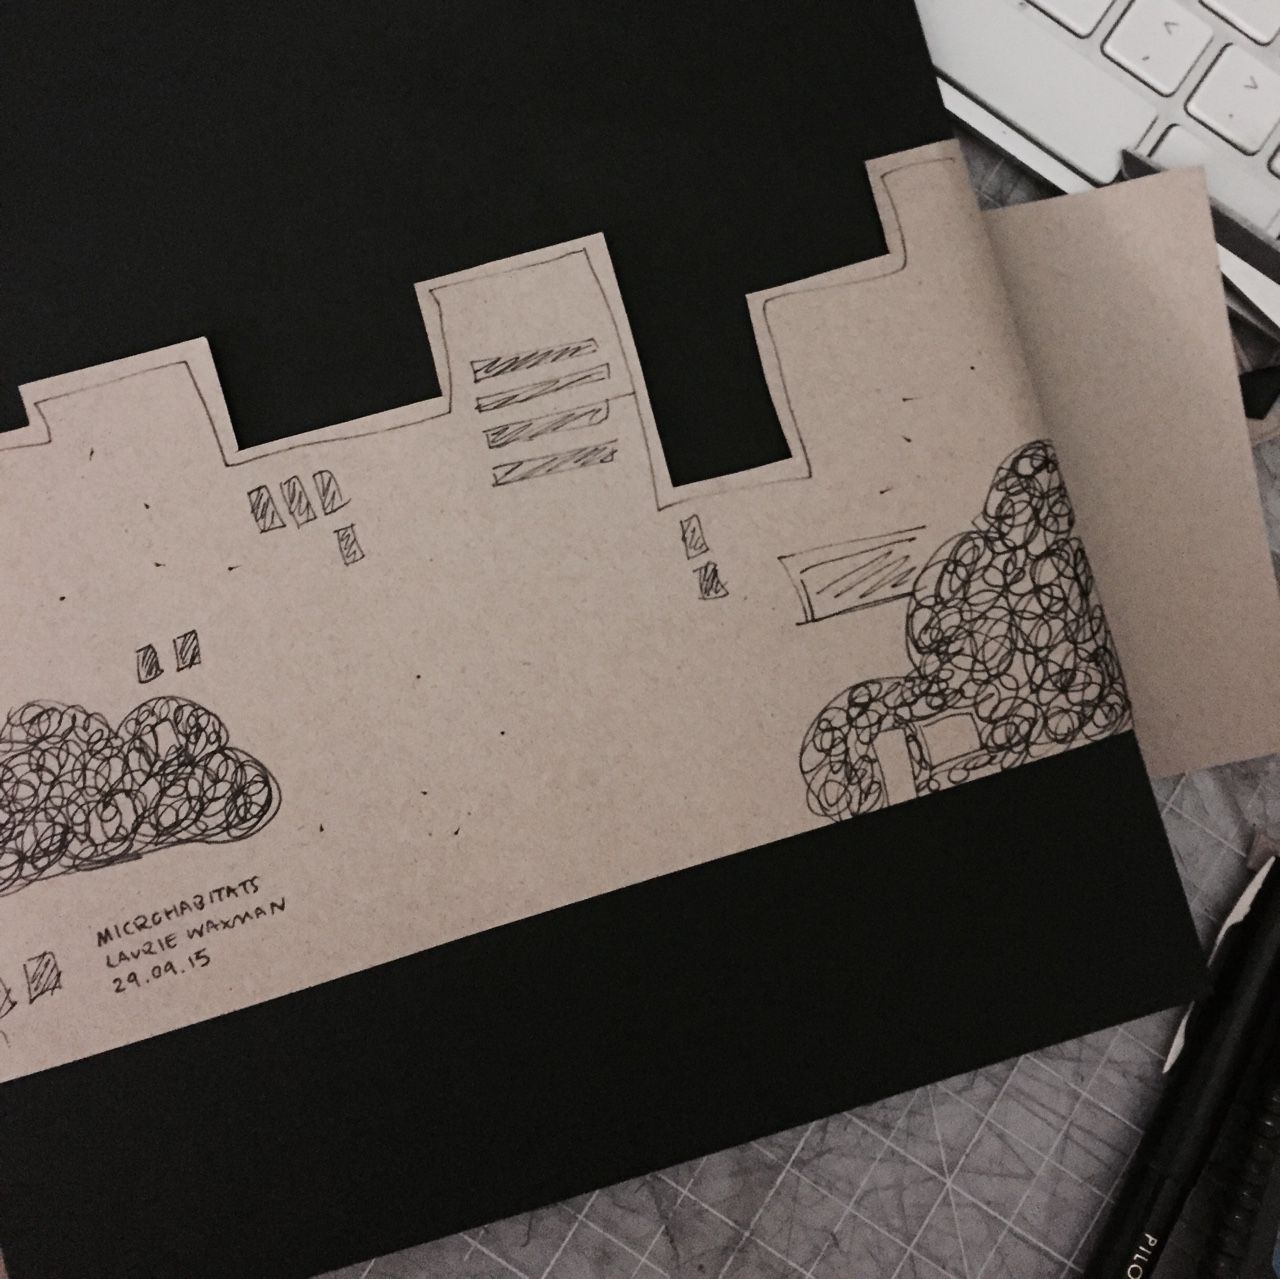 MICROHABITATS
LAURIE WAXMAN
29.09.15
PILO